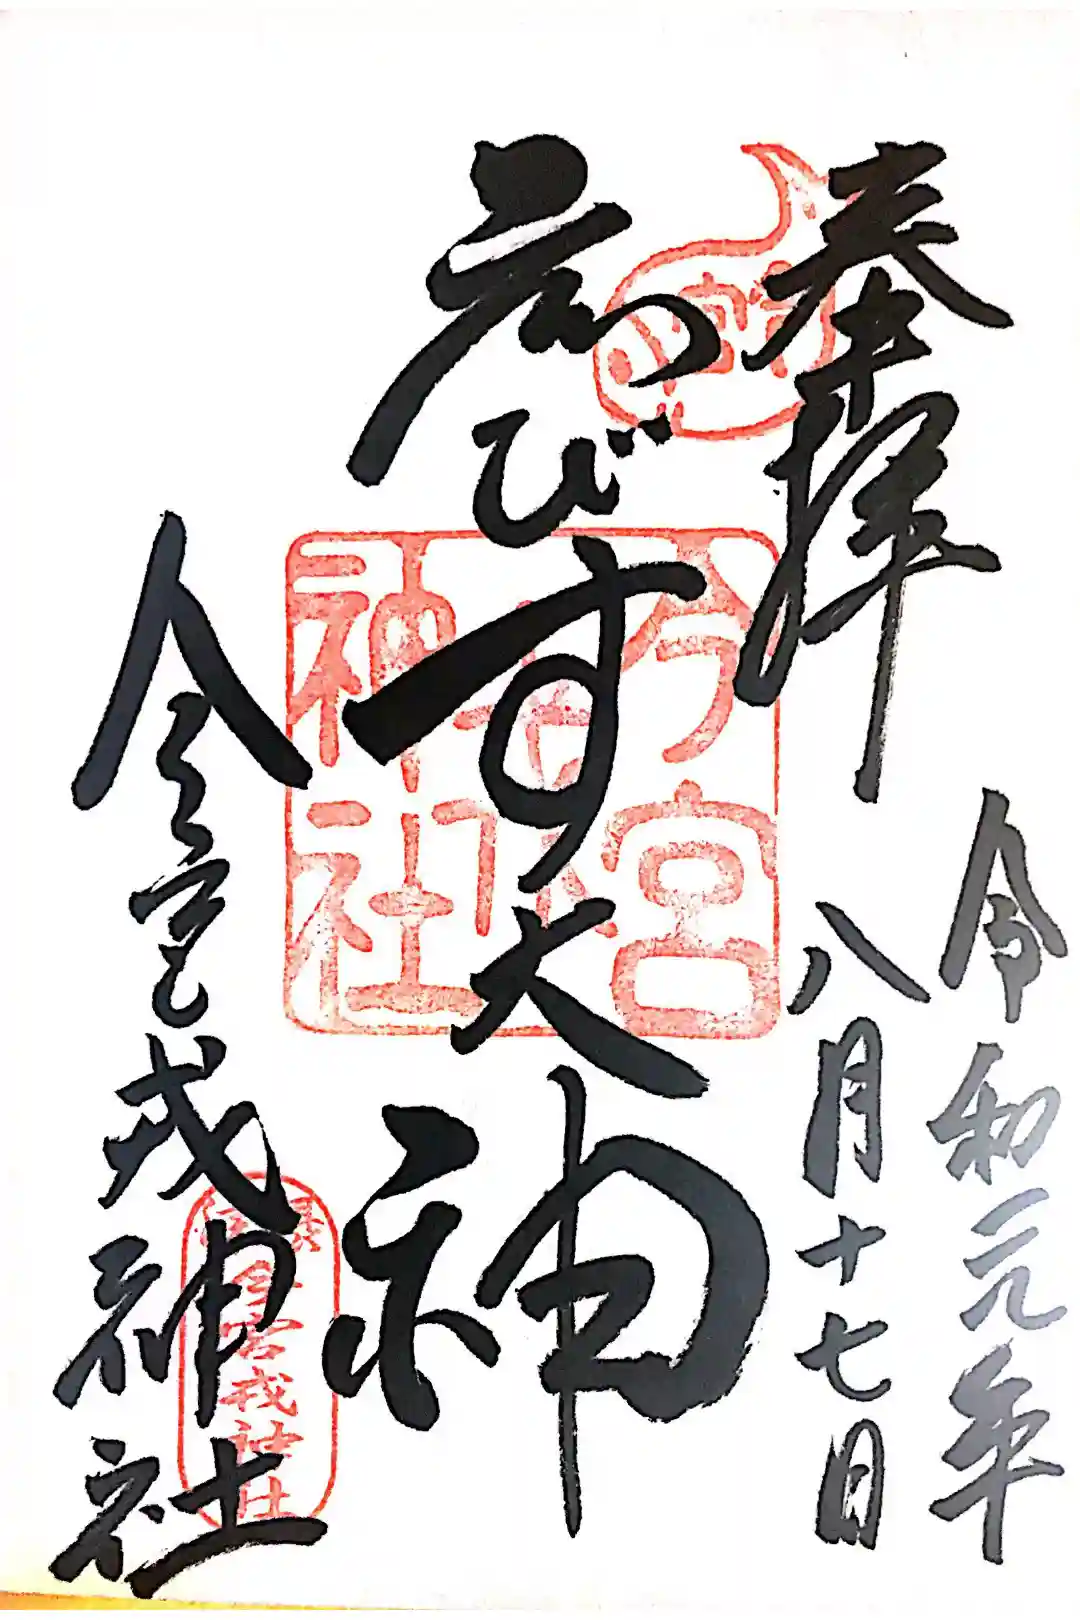 奉拝
令和元年
八月十七日
ゑびす大神
今宮戎神社
今宮戎
神社
今宮戎神社